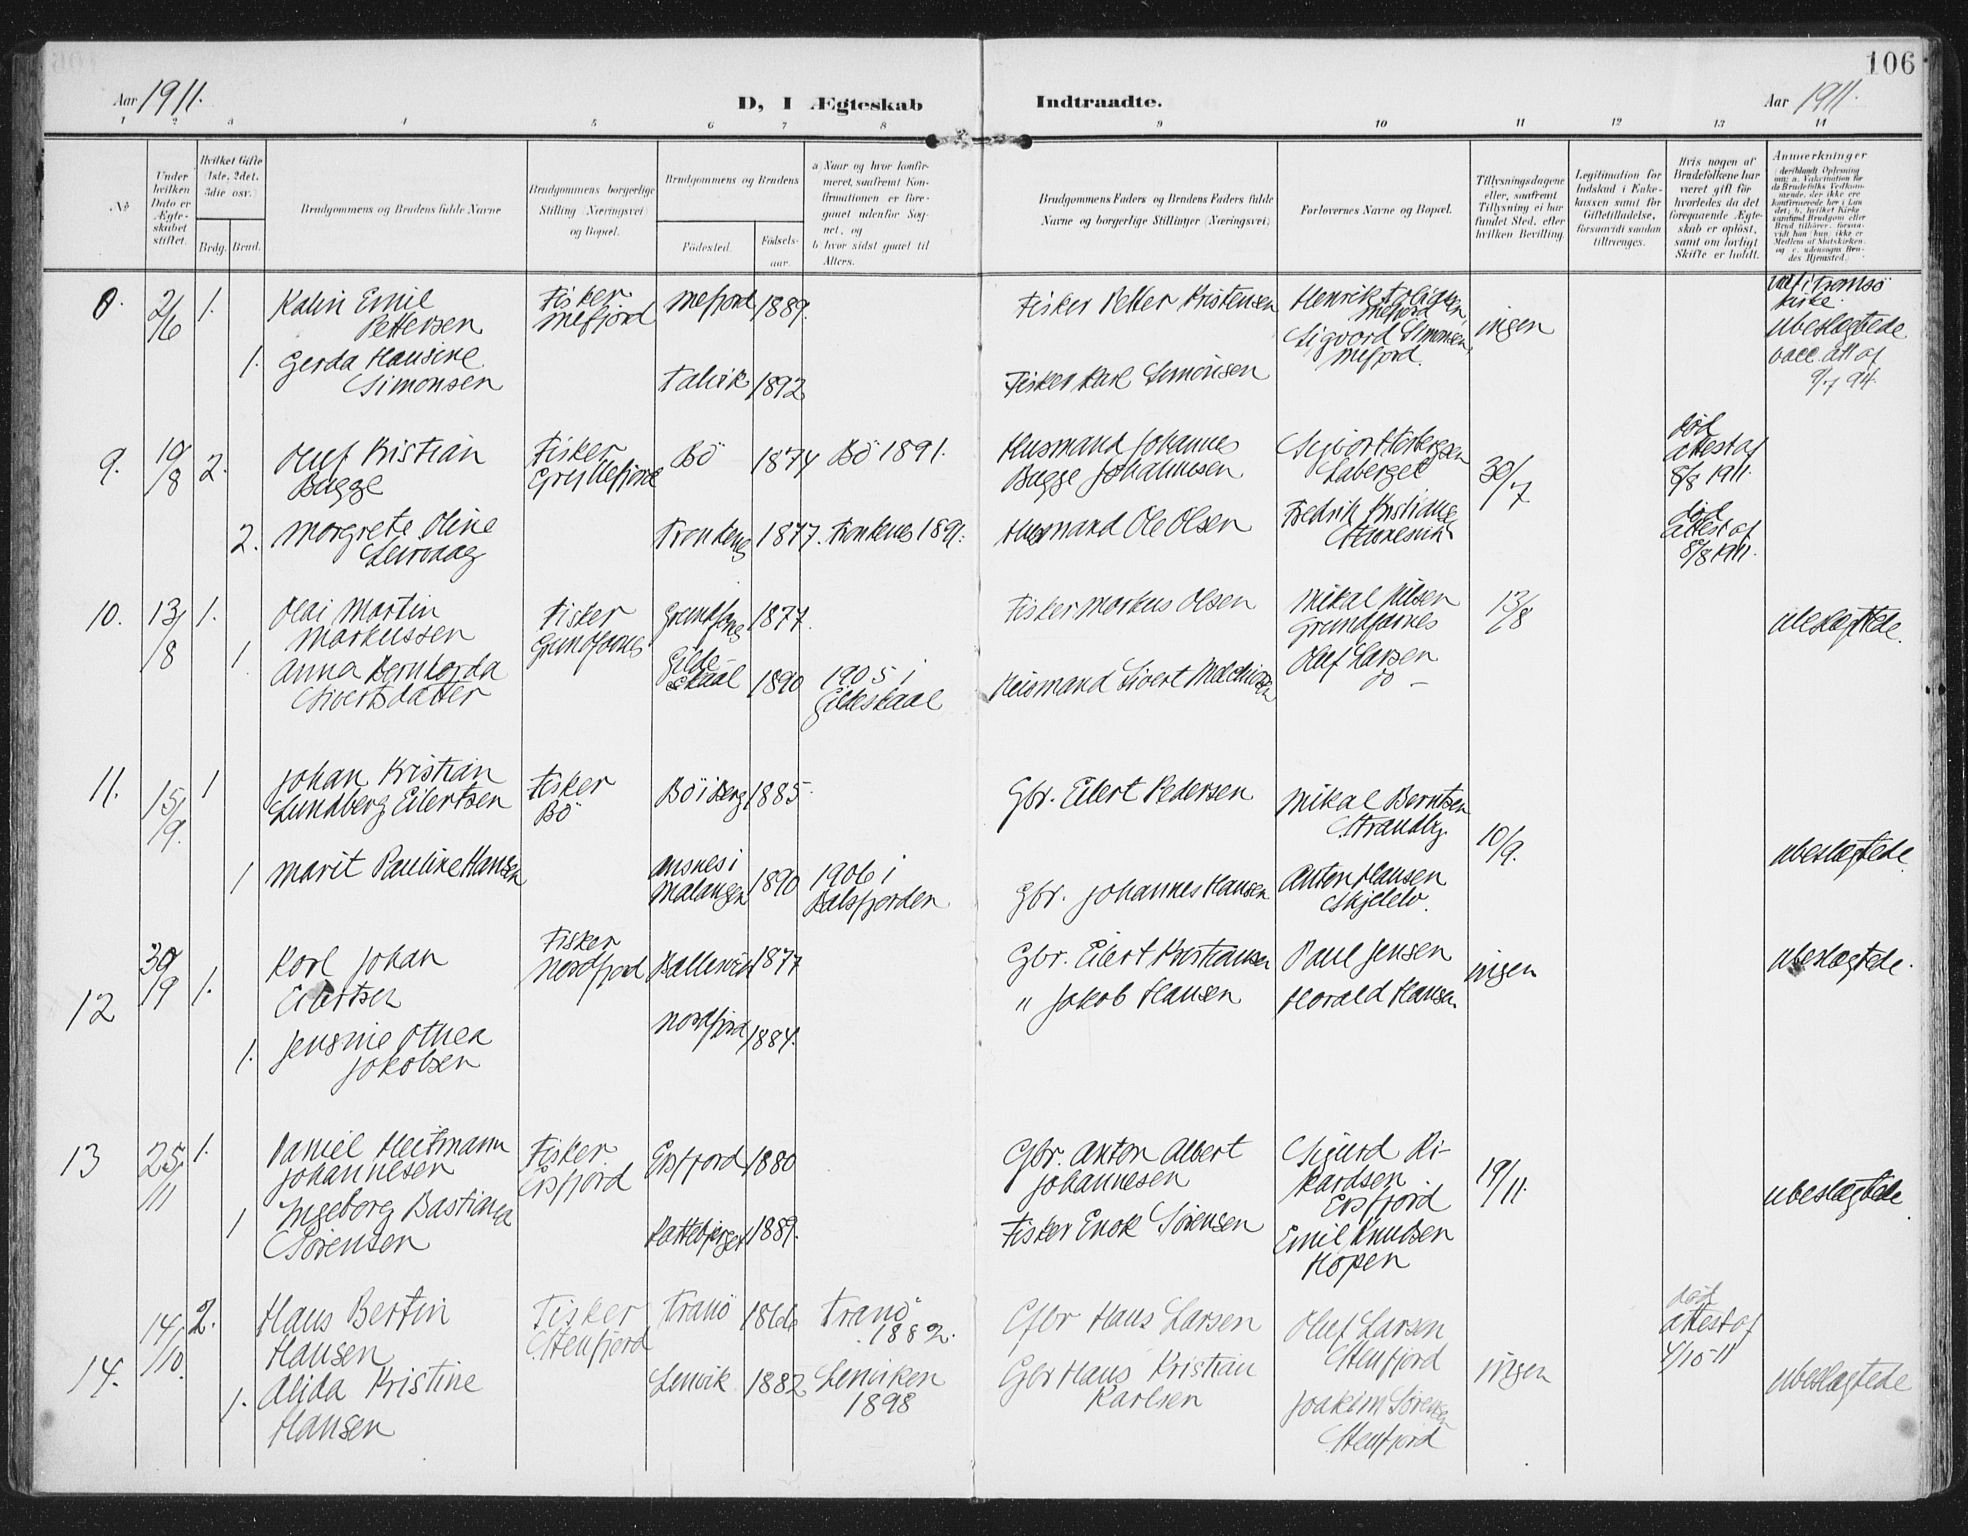 106
Aar 1911.
D, I Ægteskab Indtraadte.
Aar 1911.
1 2 3 4 5 6 7 8 9 10 11 12 13 14
No
Under hvilken Dato er Ægteskabet stiftet.
Hvilket Gifte (1ste, 2det, 3die osv.)
Brdg. Brud.
Brudgommens og Brudens fulde Navne
Brudgommens borgerlige Stilling (Næringsvei) og Bopæl.
Brudgommens og Brudens
Fødested.
Fødsels-aar.
a Naar og hvor konfirmeret, saafremt Konfirmationen er foregaaet udenfor Sognet, og
b hvor sidst gaaet til Alters.
Brudgommens Faders og Brudens Faders fulde Navne og borgerlige Stillinger (Næringsvei)
Forlovernes Navne og Bopæl.
Tillysningsdagene eller, saafremt Tillysning ei har fundet Sted, efter hvilken Bevilling.
Legitimation for Indskud i Enkekassen samt for Giftetilladelse, forsaavidt saadan tiltrænges.
Hvis nogen af Brudefolkene har været gift før hvorledes da det foregaaende Ægteskab er opløst, samt om lovligt Skifte er holdt.
Anmerkninger
8. 2/6 1. Kalin Emil Pettersen Fisker Mefjord Mefjord 1889. Fisker Petter Kristensen Henrik Mefjord ingen i Tromsø Kirke.
1. Gerda Hansine Simonsen Talvik 1892 Fisker Karl Simonsen Sigvard Simonsen, Mefjord. ubeslægtede vacc. att af 9/7 94
9. 10/8 2. Oluf Kristian Bagge Fisker Gryllefjord Bö 1874 Bö 1891. Husmand Johannes Bagge Johannesen Laberget 30/7 død attest af 8/8 1911.
2. Margrete Oline Leirvaag Trondenes 1877. Trondenes 1891. Husmand Ole Olsen Fedrik Kristiansen død attest af 8/8 1911.
10. 13/8 1. Olai Martin Markussen Fisker Grundfarnes Grundfarnes 1877. Fisker Markus Olsen Mikal Nilsen Grundfarnes 13/8 ubeslægtede.
1. Anna Bernharda Sivertsdatter Gildeskaal 1890 1905 i Gildeskaal Husmand Sivert Melchiorsen Oluf Larsen do -
11. 15/9. 1 Johan Kristian Lundberg Eilertsen Fisker Bö Bö i Berg 1885. Gbr. Eilert Pedersen Mikal Berntsen Strandby 10/9. ubeslægtede.
1 Marit Pauline Hansen Ansnes i Malangen 1890 1906 i Balsfjorden Gbr. Johannes Hansen Anton Hansen Skjelelv.
12 30/9 1. Karl Johan Eilertsen Fisker Nordfjord Ballesvik 1877 Gbr. Eilert Kristiansen Paul Jensen ingen ubeslægtede.
1. Jensine Othea Jakobsen Nordfjord 1884. " Jakob Hansen Harald Hansen
13 25/11 1. Daniel Heitmann Johannesen Fisker Ersfjord Ersfjord 1880 Gbr. Anton Albert Johannesen Sigurd Rikardsen Ersfjord 19/11. ubeslægtede
1 Ingeborg Bastiana Sørensen 1889. Fisker Enok Sørensen Emil Knudsen Hopen
14. 14/10. 2. Hans Bertin Hansen Fisker Stenfjord Tranö 1866 Tranö 1882. Gbr Hans Larsen Oluf Larsen Stenfjord ingen død attest af 4/10-11 ubeslægtede
1. Alida Kristine Hansen Lenvik 1882 Lenviken 1898 Gbr Hans Kristian Karlsen Joakim Sørensen Stenfjord